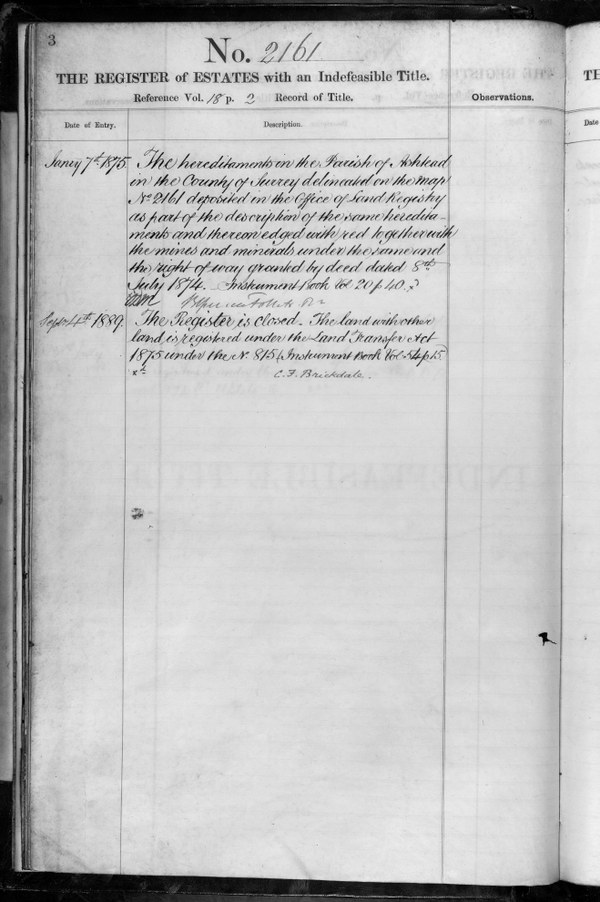 3
No. 2161
THE REGISTER of ESTATES with an Indefeasible Title.
Reference Vol. 18 p. 2 Record of Title.
Observations.
Date of Entry.
Description.
Jany 7th 1875. The hereditaments in the Parish of Ashtead
in the County of Surrey delineated on the map
No 2161 deposited in the Office of Land Registry
as part of the description of the same heredita-
ments and thereon edged with red together with
the mines and minerals under the same and
the right of way granted by deed dated 8th
July 1874. Instrument Book Vol 20 p 40.
Sept 4th 1889. The Register is closed. The land with other
land is registered under the Land Transfer Act
1875 under the No. 815 (Instrument Book Vol 54 p 15
C. F. Brickdale.
TH
Date